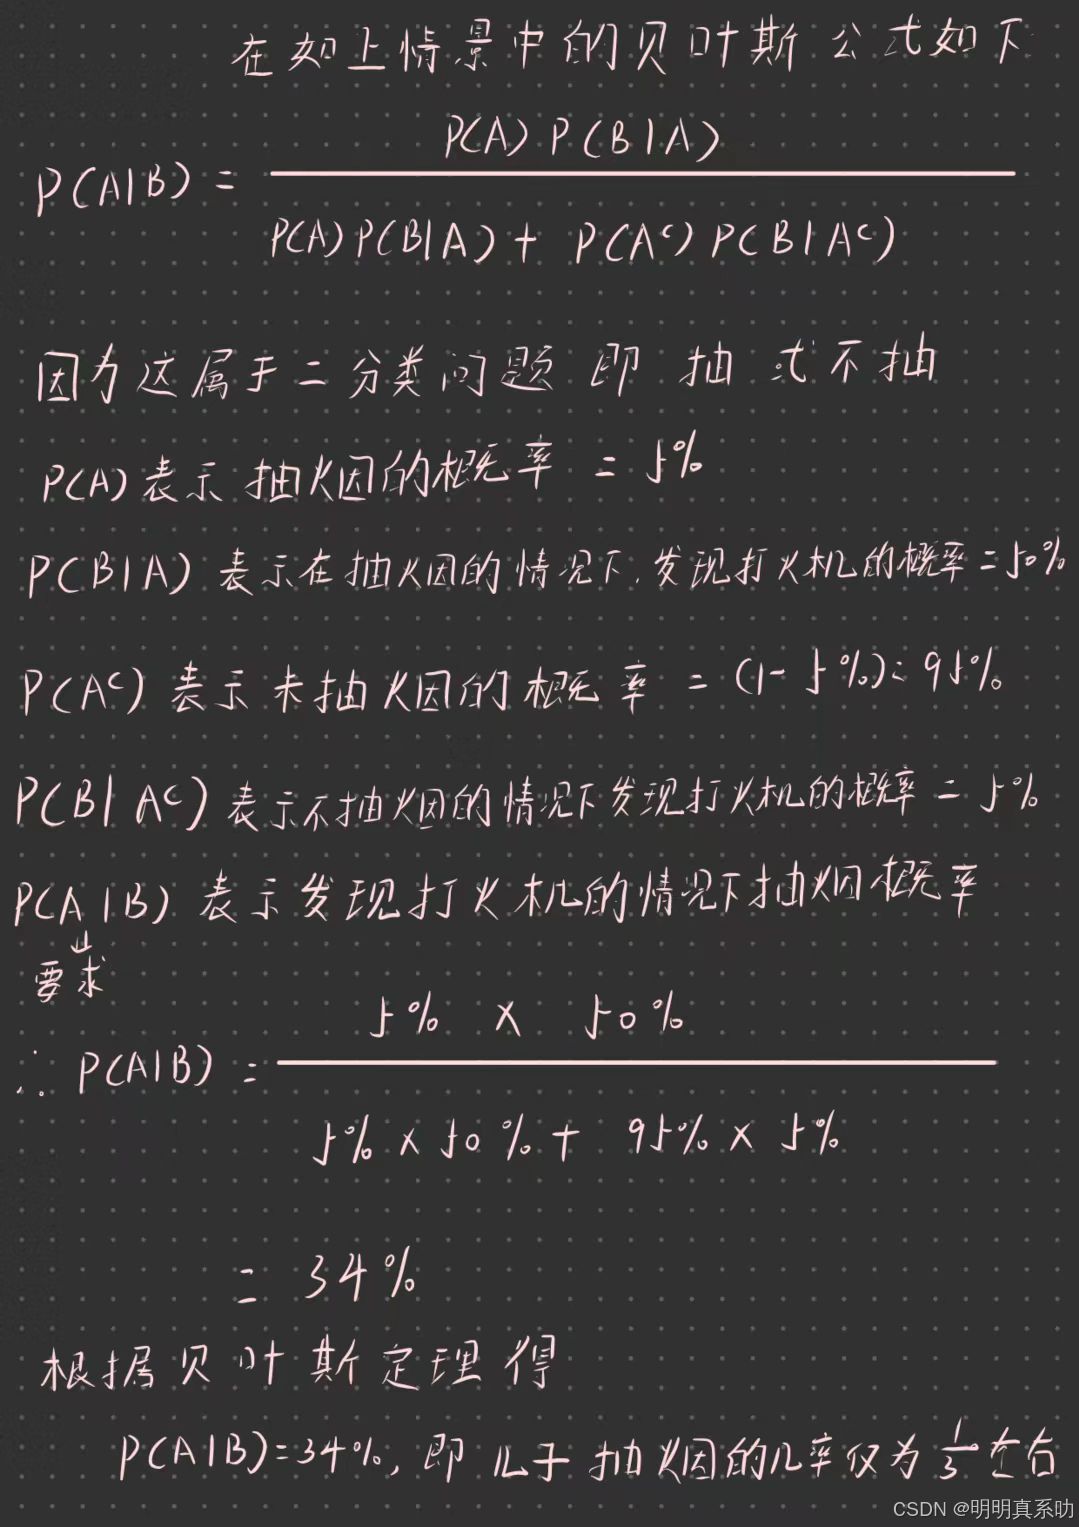 在如上情景中的贝叶斯公式如下
P(A)P(B|A)
P(A|B) =
P(A)P(B|A) + P(Aᶜ)P(B|Aᶜ)
因为这属于二分类问题 即 抽 或不抽
P(A)表示抽烟的概率 = 5%
P(B|A)表示在抽烟的情况下,发现打火机的概率=50%
P(Aᶜ)表示未抽烟的概率 = (1-5%)=95%
P(B|Aᶜ)表示不抽烟的情况下发现打火机的概率 = 5%
P(A|B)表示发现打火机的情况下抽烟概率
要求
5% × 50%
∴ P(A|B) =
5% × 50% + 95% × 5%
= 34%
根据贝叶斯定理得
P(A|B)=34%, 即 儿子抽烟的几率仅为 1/3 左右
CSDN @明明真系叻